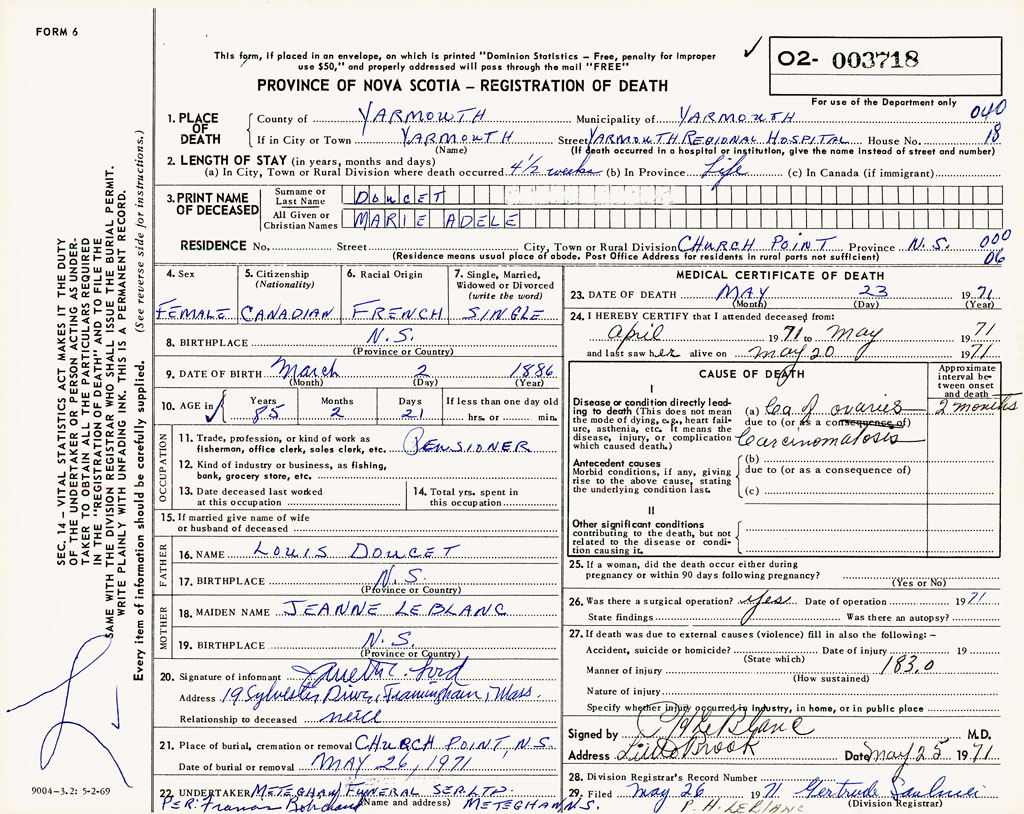 FORM 6
This form, if placed in an envelope, on which is printed "Dominion Statistics – Free, penalty for improper
use $50," and properly addressed will pass through the mail "FREE"
✓ 02- 003718
PROVINCE OF NOVA SCOTIA – REGISTRATION OF DEATH
For use of the Department only
1. PLACE OF DEATH County of YARMOUTH Municipality of YARMOUTH 040
If in City or Town YARMOUTH Street YARMOUTH REGIONAL HOSPITAL House No. 18
(Name) (If death occurred in a hospital or institution, give the name instead of street and number)
2. LENGTH OF STAY (in years, months and days)
(a) In City, Town or Rural Division where death occurred 4½ weeks (b) In Province Life (c) In Canada (if immigrant)
3. PRINT NAME OF DECEASED Surname or Last Name DOUCET
All Given or Christian Names MARIE ADELE
RESIDENCE No. Street City, Town or Rural Division CHURCH POINT Province N.S. 000
(Residence means usual place of abode. Post Office Address for residents in rural parts not sufficient) 06
4. Sex 5. Citizenship (Nationality) 6. Racial Origin 7. Single, Married, Widowed or Divorced (write the word)
FEMALE CANADIAN FRENCH SINGLE
8. BIRTHPLACE N.S.
(Province or Country)
9. DATE OF BIRTH March 2 1886
(Month) (Day) (Year)
10. AGE in ✓ Years Months Days If less than one day old
85 2 21 hrs. or min.
OCCUPATION
11. Trade, profession, or kind of work as
fisherman, office clerk, sales clerk, etc. PENSIONER
12. Kind of industry or business, as fishing,
bank, grocery store, etc.
13. Date deceased last worked
at this occupation
14. Total yrs. spent in
this occupation
15. If married give name of wife
or husband of deceased
FATHER
16. NAME LOUIS DOUCET
17. BIRTHPLACE N.S.
(Province or Country)
MOTHER
18. MAIDEN NAME JEANNE LEBLANC
19. BIRTHPLACE N.S.
(Province or Country)
20. Signature of informant
Address 19 Sylvester Drive, Framingham, Mass.
Relationship to deceased neice
21. Place of burial, cremation or removal CHURCH POINT, N.S.
Date of burial or removal MAY 26, 1971
22. UNDERTAKER METEGHAN FUNERAL SER. LTD
(Name and address) METEGHAN N.S.
PER: Francis
MEDICAL CERTIFICATE OF DEATH
23. DATE OF DEATH MAY 23 1971
(Month) (Day) (Year)
24. I HEREBY CERTIFY that I attended deceased from:
April 1971 to May 1971
and last saw her alive on May 20 1971
CAUSE OF DEATH
Approximate interval between onset and death
I
Disease or condition directly leading to death (This does not mean the mode of dying, e.g., heart failure, asthenia, etc. It means the disease, injury, or complication which caused death.)
(a) Ca of ovaries 2 months
due to (or as a consequence of)
Carcinomatosis
Antecedent causes
Morbid conditions, if any, giving rise to the above cause, stating the underlying condition last.
(b)
due to (or as a consequence of)
(c)
II
Other significant conditions
contributing to the death, but not related to the disease or condition causing it.
25. If a woman, did the death occur either during
pregnancy or within 90 days following pregnancy?
(Yes or No)
26. Was there a surgical operation? yes Date of operation 1971
State findings Was there an autopsy?
27. If death was due to external causes (violence) fill in also the following: –
Accident, suicide or homicide? Date of injury 19
(State which)
Manner of injury 183.0
(How sustained)
Nature of injury
Specify whether injury occurred in industry, in home, or in public place
Signed by LeBlanc M.D.
Address Little Brook Date May 25 1971
28. Division Registrar's Record Number
29. Filed May 26 1971 Gertrude Saulnier
P. H. LEBLANC (Division Registrar)
SEC. 14 – VITAL STATISTICS ACT MAKES IT THE DUTY
OF THE UNDERTAKER OR PERSON ACTING AS UNDER-
TAKER TO OBTAIN THE PARTICULARS REQUIRED
IN THE "REGISTRATION OF DEATH" AND TO FILE THE
SAME WITH THE DIVISION REGISTRAR WHO SHALL ISSUE THE BURIAL PERMIT.
WRITE PLAINLY WITH UNFADING INK. THIS IS A PERMANENT RECORD.
Every item of information should be carefully supplied. (See reverse side for instructions.)
9004-3.2: 5-2-69